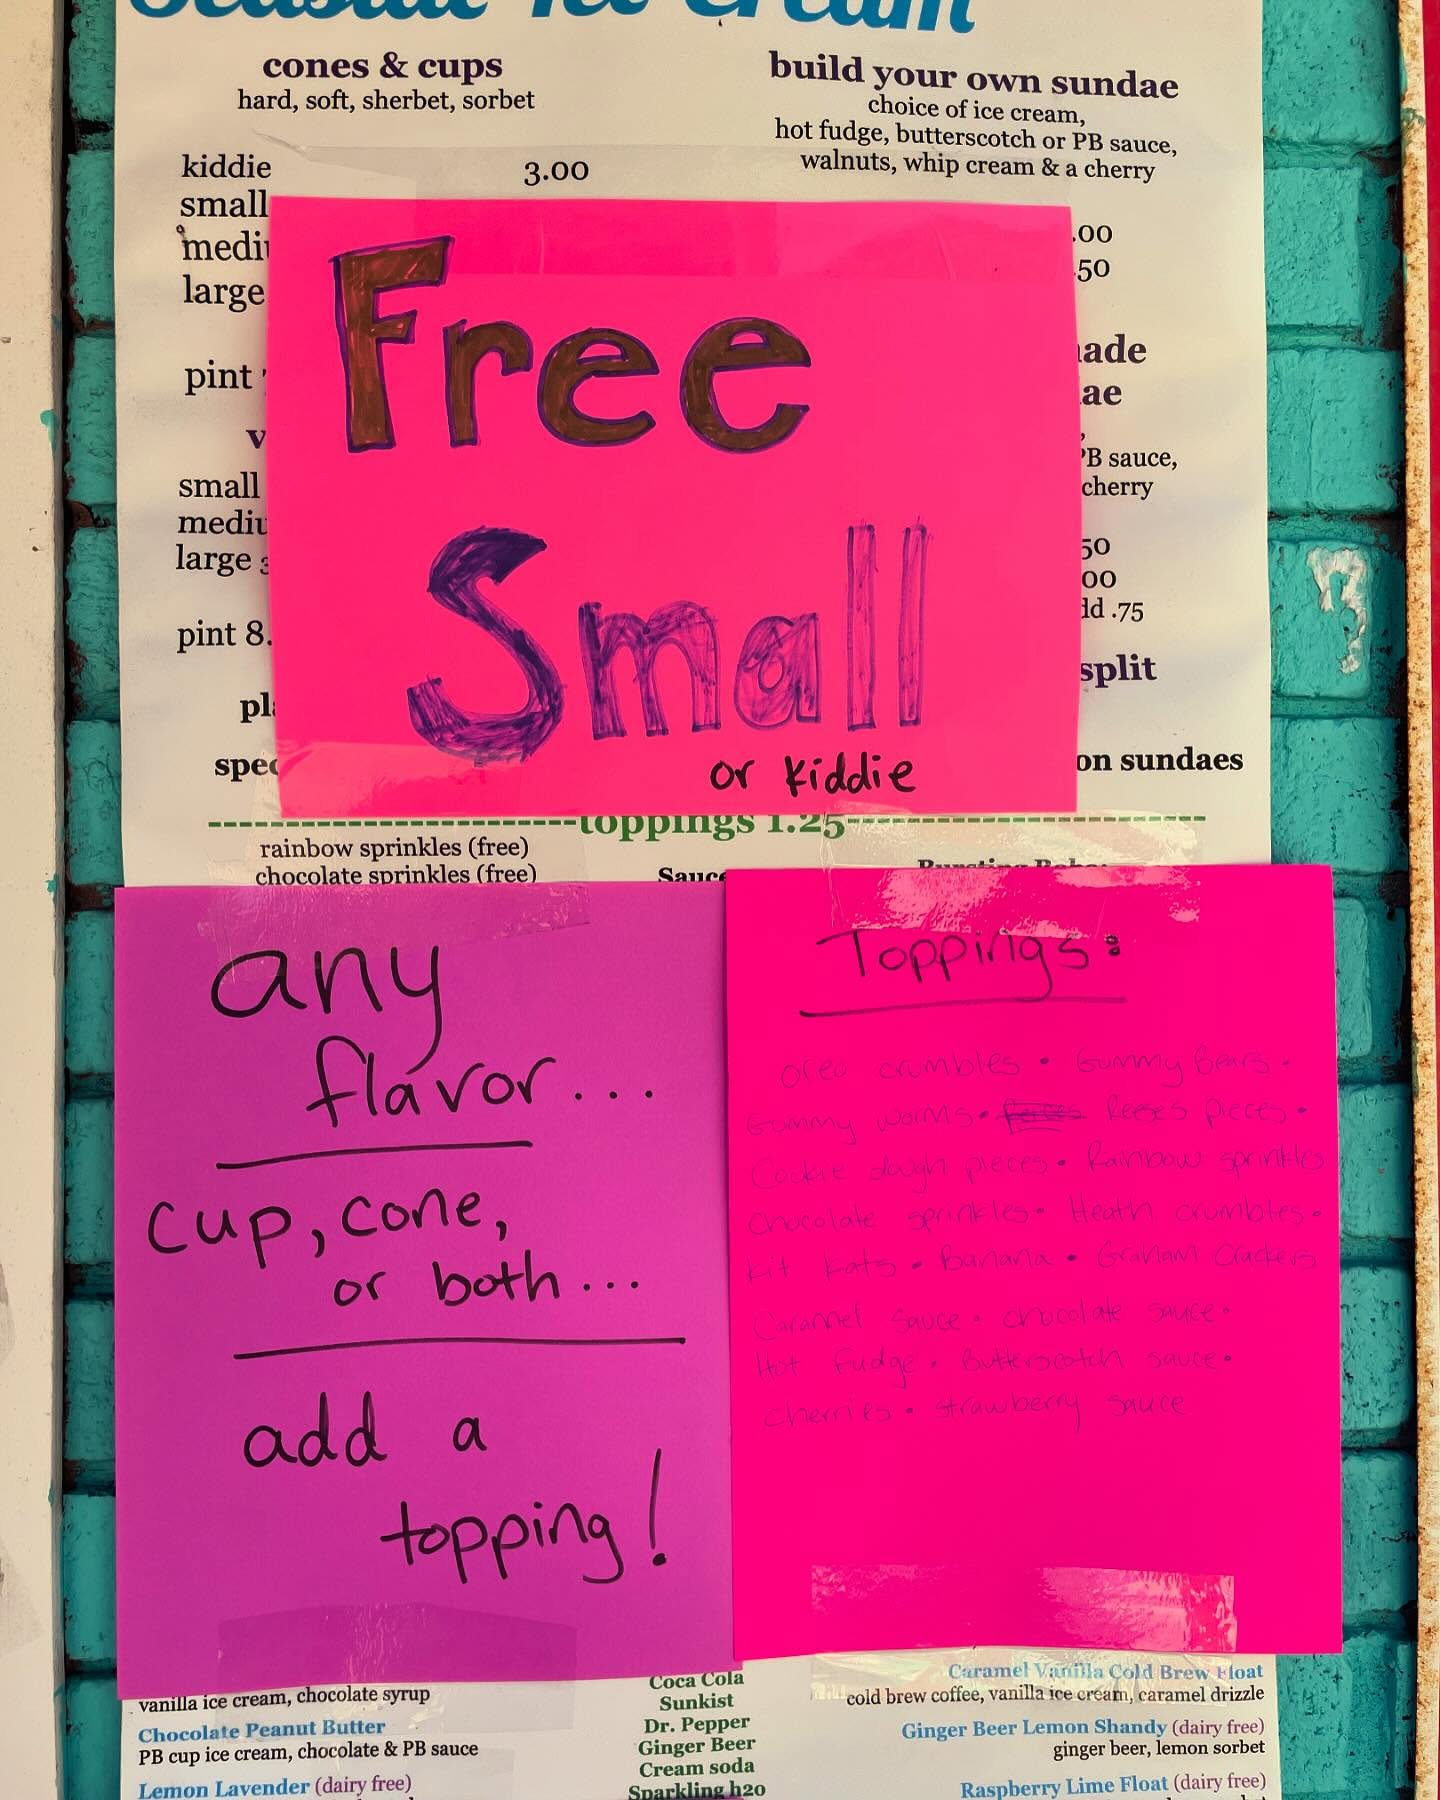 Seaside Ice Cream
cones & cups
hard, soft, sherbet, sorbet
kiddie 3.00
small
large
pint
small
large
pint 8.
build your own sundae
choice of ice cream,
hot fudge, butterscotch or PB sauce,
walnuts, whip cream & a cherry
.00
.50
PB sauce,
cherry
50
00
.75
split
on sundaes
Free
Small
or kiddie
toppings 1.25
rainbow sprinkles (free)
chocolate sprinkles (free)
Sauce
any
flavor...
cup, cone,
or both...
add a
topping!
Toppings:
oreo crumbles • Gummy Bears •
Gummy worms • Reese's pieces •
Cookie dough pieces • Rainbow sprinkles
Chocolate sprinkles • Heath crumbles •
Kit Kats • Banana • Graham Crackers
Caramel sauce • chocolate sauce •
Hot Fudge • Butterscotch sauce •
Cherries • strawberry sauce
vanilla ice cream, chocolate syrup
Chocolate Peanut Butter
PB cup ice cream, chocolate & PB sauce
Lemon Lavender (dairy free)
Coca Cola
Sunkist
Dr. Pepper
Ginger Beer
Cream soda
Sparkling h2o
Caramel Vanilla Cold Brew Float
cold brew coffee, vanilla ice cream, caramel drizzle
Ginger Beer Lemon Shandy (dairy free)
ginger beer, lemon sorbet
Raspberry Lime Float (dairy free)